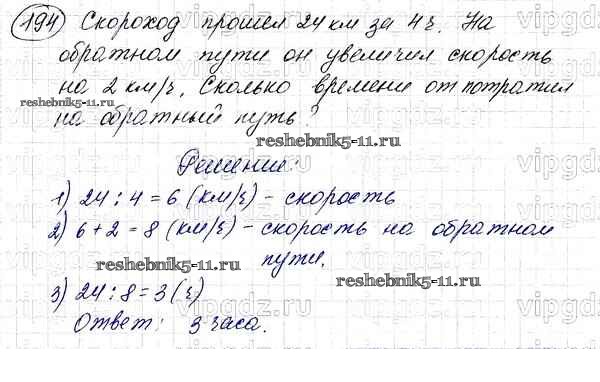 194 Скороход прошел 24 км за 4 ч. На
обратном пути он увеличил скорость
на 2 км/ч. Сколько времени от потратил
reshebnik5-11.ru
на обратный путь?
reshebnik5-11.ru
Решение:
1) 24 : 4 = 6 (км/ч) - скорость
2) 6 + 2 = 8 (км/ч) - скорость на обратном
пути.
reshebnik5-11.ru
reshebnik5-11.ru
3) 24 : 8 = 3 (ч)
Ответ: 3 часа.
vipgdz.ru